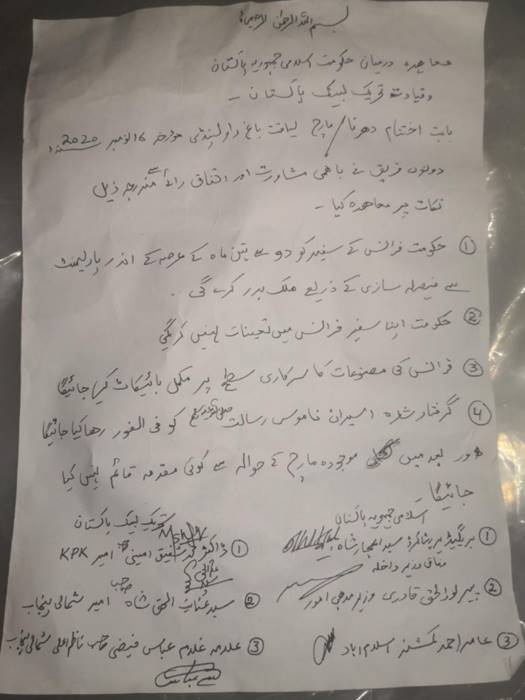 بسم اللہ الرحمٰن الرحیم
معاہدہ درمیان حکومت اسلامی جمہوریہ پاکستان
و قیادت تحریک لبیک پاکستان ۔
بابت اختتام دھرنا/مارچ لیاقت باغ راولپنڈی مؤرخہ 16 نومبر 2020
دونوں فریق نے باہمی مشاورت اور اتفاق رائے مندرجہ ذیل
نکات پر معاہدہ کیا ۔
① حکومت فرانس کے سفیر کو دو سے تین ماہ کے عرصہ کے اندر پارلیمنٹ
سے فیصلہ سازی کے ذریعے ملک بدر کرے گی ۔
② حکومت اپنا سفیر فرانس میں تعینات نہیں کریگی
③ فرانس کی مصنوعات کا سرکاری سطح پر مکمل بائیکاٹ کیا جائیگا
④ گرفتار شدہ اسیران ناموس رسالت کو فی الفور رھا کیا جائیگا
اور بعد میں موجودہ مارچ کے حوالہ سے کوئی مقدمہ قائم نہیں کیا
جائیگا ۔
اسلامی جمہوریہ پاکستان
تحریک لبیک پاکستان
① بریگیڈیر ریٹائرڈ سید اعجاز شاہ
وفاقی وزیر داخلہ
① ڈاکٹر محمد شفیق امینی امیر KPK
② پیر نورالحق قادری وزیر مذہبی امور
② سید عنایت الحق شاہ صاحب امیر شمالی پنجاب
③ عامر احمد کمشنر اسلام اباد
③ علامہ غلام عباس فیضی صاحب ناظم اعلی شمالی پنجاب